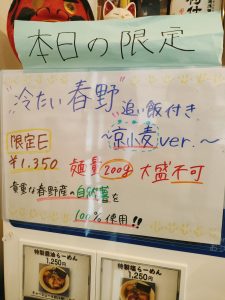 本日の限定
"冷たい春野" 追い飯付き
～京小麦ver.～
限定日
¥1,350
麺量200g 大盛不可
貴重な春野産の自然薯を
100%使用!!
特製醤油らーめん
1,250円
特製塩らーめん
1,250円